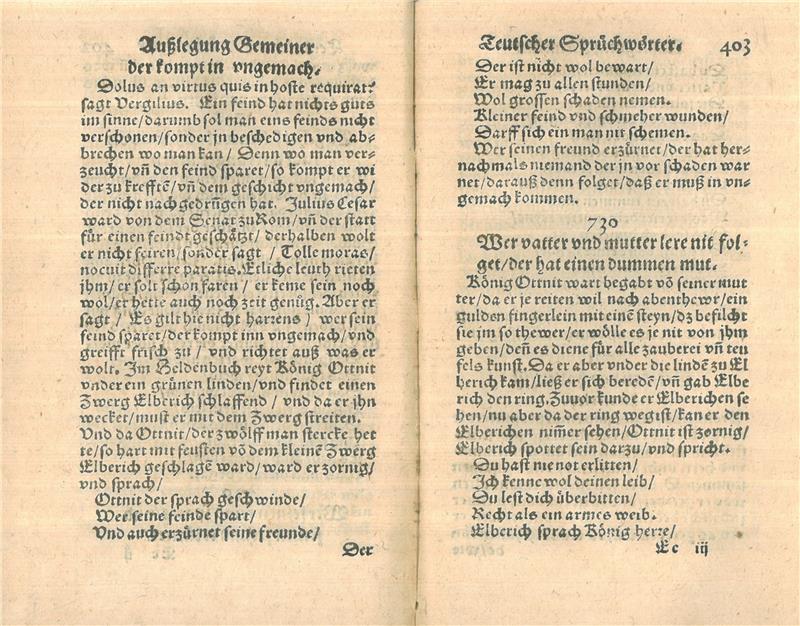 Außlegung Gemeiner
der kompt in vngemach.
Dolus an virtus quis in hoste requirat?
sagt Vergilius. Ein feind hat nichts guts
im sinne/darumb sol man eins feinds nicht
verschonen/sonder jn beschedigen vnd ab-
brechen wo man kan/ Denn wo man ver-
zeucht/vn̄ den feind sparet/so kompt er wi
der zu krefftē/vn̄ dem geschicht vngemach/
der nicht nach gedrūgen hat. Julius Cesar
ward von dem Senat zu Rom/vn̄ der statt
für einen feindt geschätzt/derhalben wolt
er nicht feiren/sonder sagt / Tolle moras/
nocuit differre paratis. Etliche leuth rieten
jhm/er solt schon faren/ er keme sein noch
wol/er hette auch noch zeit genůg. Aber er
sagt / Es gilt hie nicht harrens/ wer sein
feind sparet/der kompt inn vngemach/vnd
greifft frisch zu / vnd richter auß was er
wolt. Im Heldenbuch reyt König Ottnit
vnder ein grünen linden/vnd findet einen
Zwerg Elberich schlaffend / vnd da er jhn
wecket/must er mit dem Zwerg streiten.
Vnd da Ottnit/der zwölff man stercke het
te/so hart mit feusten vō dem kleinē Zwerg
Elberich geschlagē ward/ward er zornig/
vnd sprach/
Ottnit der sprach geschwinde/
Wer seine feinde spart/
Vnd auch erzürnet seine freunde/
Der
Teutscher Sprüchwörter. 403
Der ist nicht wol bewart/
Er mag zu allen stunden/
Wol grossen schaden nemen.
Kleiner feind vnd schmeher wunden/
Darff sich ein man nit schemen.
Wer seinen freund erzürnet/der hat her-
nachmals niemand der jn vor schaden war
net/darauß denn folget/daß er muß in vn-
gemach kommen.
730
Wer vatter vnd mutter lere nit fol-
get/der hat einen dummen mut.
König Ottnit wart begabt vō seiner mut
ter/da er je reiten wil nach abenthewr/ein
gulden fingerlein mit einē steyn/dz befilcht
sie jm so thewer/er wölle es je nit von jhm
geben/deñ es diene für alle zauberei vn̄ teu
fels kunst. Da er aber vnder die lindē zu El
berich kam/ließ er sich beredē/vn̄ gab Elbe
rich den ring. Zuuor kunde er Elberichen se
hen/nu aber da der ring weg ist/kan er den
Elberichen nim̄er sehen/Ottnit ist zornig/
Elberich spottet sein darzu/vnd spricht.
Du hast nie not erlitten/
Ich kenne wol deinen leib/
Du lest dich überbitten/
Recht als ein armes weib.
Elberich sprach König herre/
Ee iij